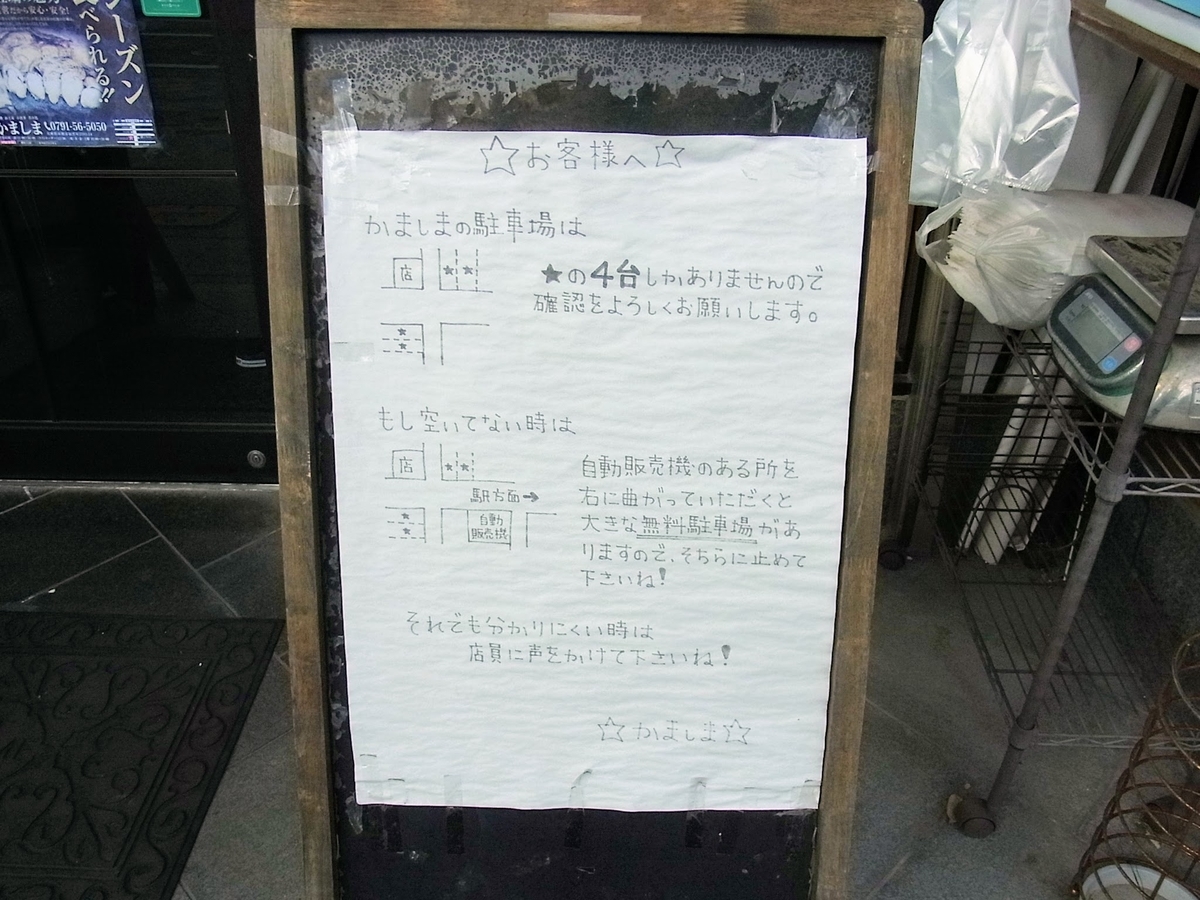 ーズン
べられる!!
かましま 0791-56-5050
☆お客様へ☆
かましまの駐車場は
店 ★ ★
★の4台しかありませんので
確認をよろしくお願いします。
★
★
もし空いてない時は
店 ★ ★
駅方面→
★
★
自動
販売機
自動販売機のある所を
右に曲がっていただくと
大きな無料駐車場があ
りますので、そちらに止めて
下さいね!
それでも分かりにくい時は
店員に声をかけて下さいね!
☆かましま☆